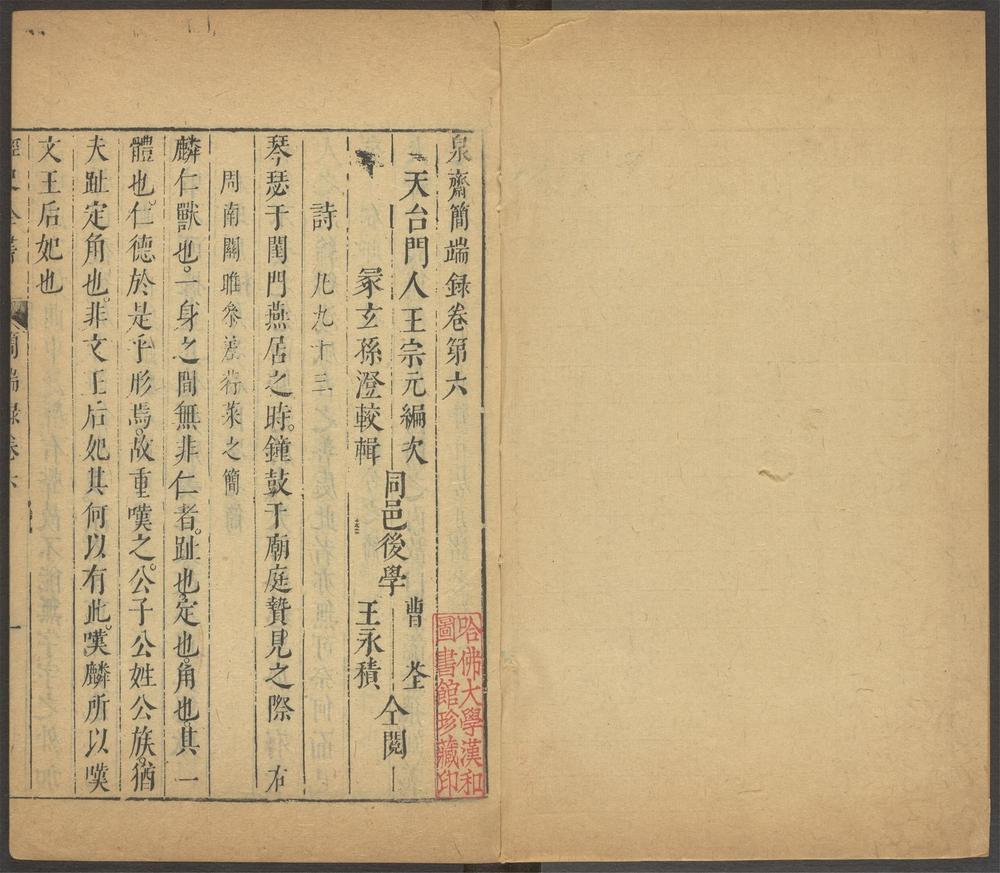 泉齋簡端録卷第六
天台門人王宗元編次
冡玄孫澄較輯
同邑後學
曹荃
王永積
仝閱
詩 凡九十三
琴瑟于閨門燕居之時鐘鼓于廟庭贊見之際 右
周南關雎參差荇菜之簡
麟仁獸也一身之間無非仁者趾也定也角也其一
體也仁德於是乎形焉故重嘆之公子公姓公族猶
夫趾定角也非文王后妃其何以有此嘆麟所以嘆
文王后妃也
簡端録卷六
一
哈佛大學漢和
圖書館珍藏印